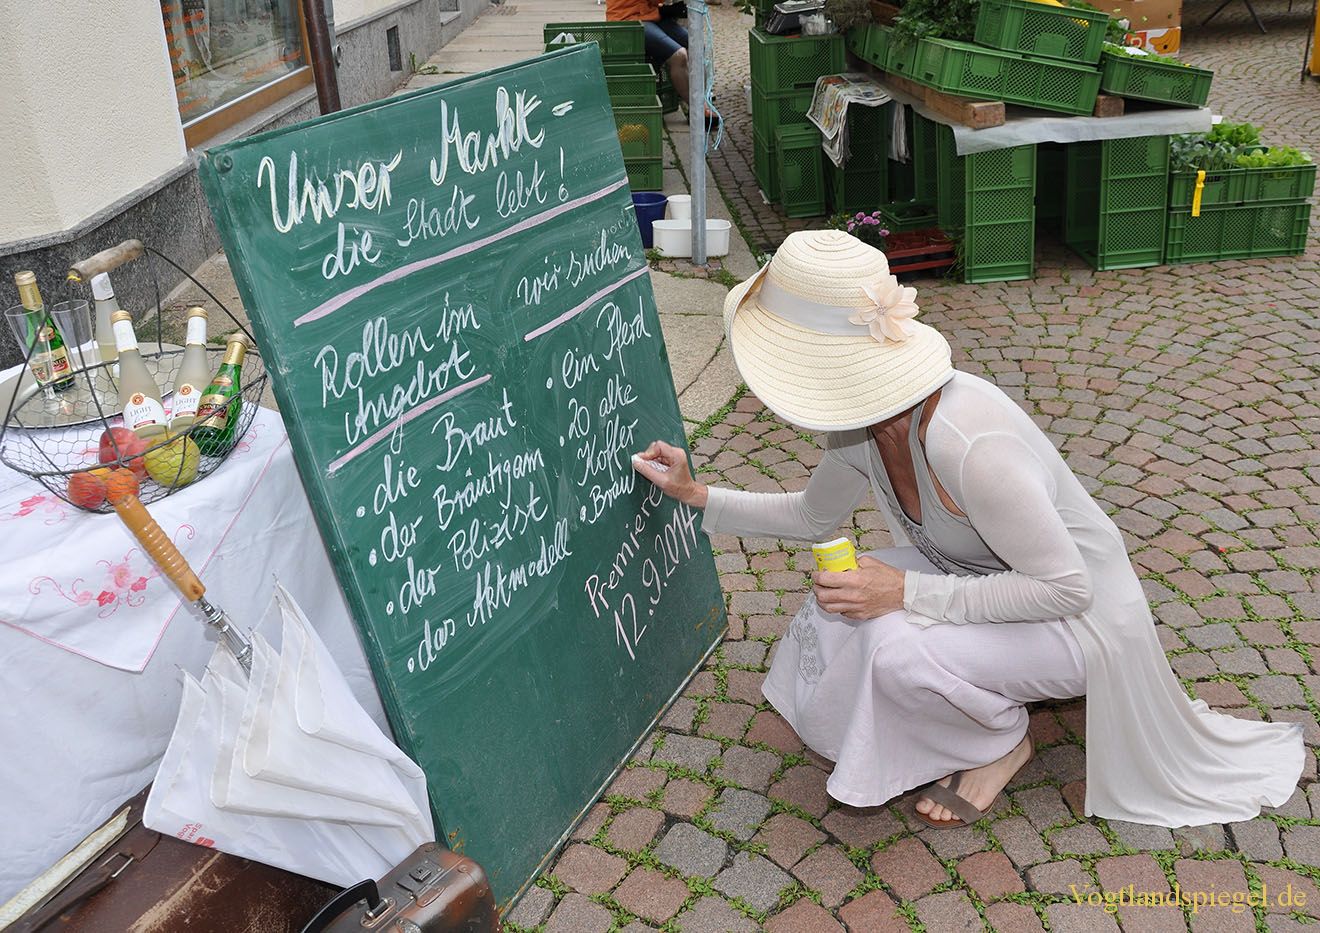 Unser Markt -
die Stadt lebt!
Rollen im
Angebot
• die Braut
• der Bräutigam
• der Polizist
• das Aktmodell
wir suchen
noch
• ein Pferd
• 20 alte
Koffer
• Brau
Premiere
12.9.2014
LIGHT
live
LIGHT
live
Vogtlandspiegel.de